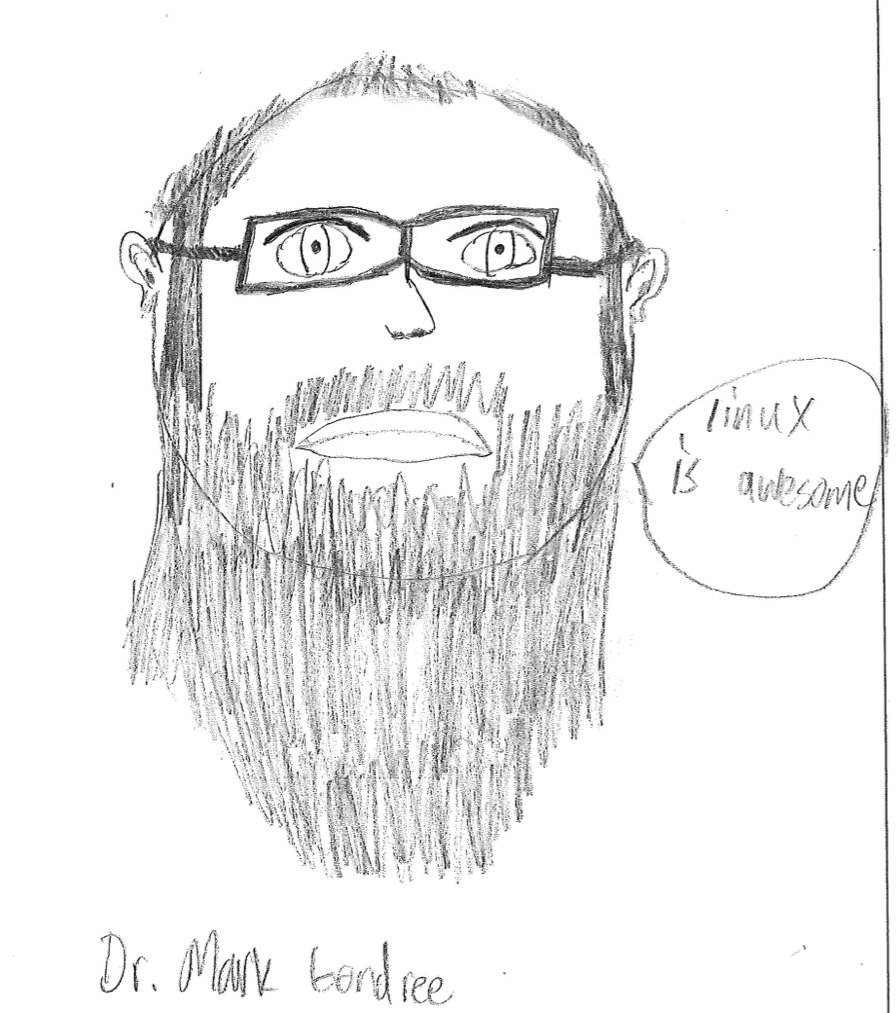 linux
is awesome
Dr. Mark Gondree